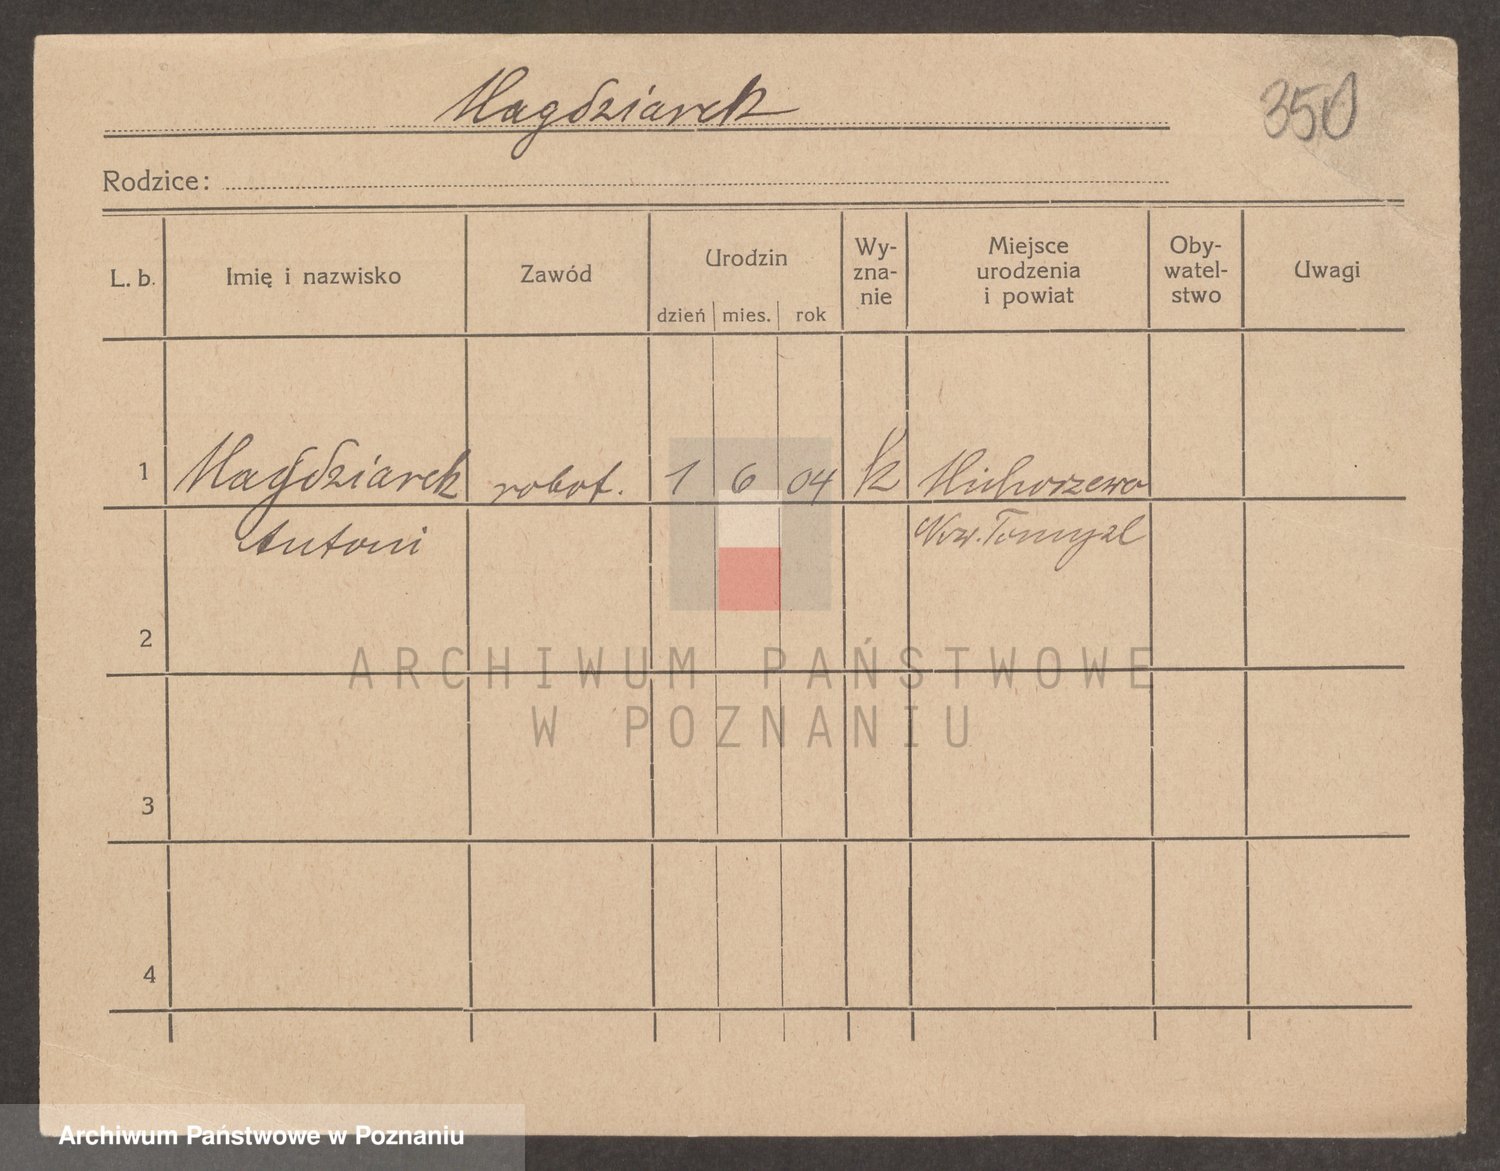 Magdziarek
350
Rodzice:
L. b. Imię i nazwisko Zawód Urodzin dzień mies. rok Wy-zna-nie Miejsce urodzenia i powiat Oby-watel-stwo Uwagi
1 Magdziarek robot. 1 6 04 k Michorzewo
Antoni Now. Tomyśl
2
3
4
ARCHIWUM PAŃSTWOWE
W POZNANIU
Archiwum Państwowe w Poznaniu